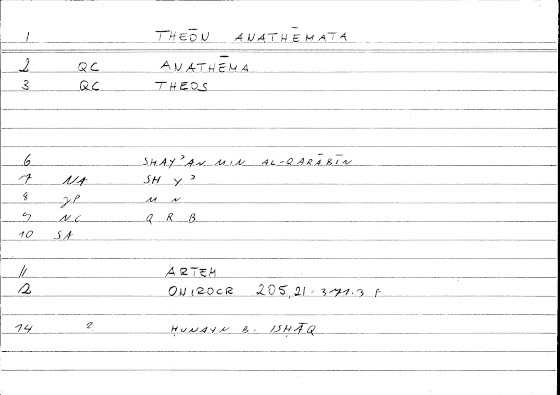 1 THEŌN ANATHĒMATA
2 QC ANATHĒMA
3 QC THEOS
6 SHAYʾAN MIN AL-QARĀBĪN
7 NA SH Y ʾ
8 JP M N
9 NC Q R B
10 SA
11 ARTEM
12 ONIROCR 205,21 - 371.3 F
14 ? ḤUNAYN B. ISḤĀQ